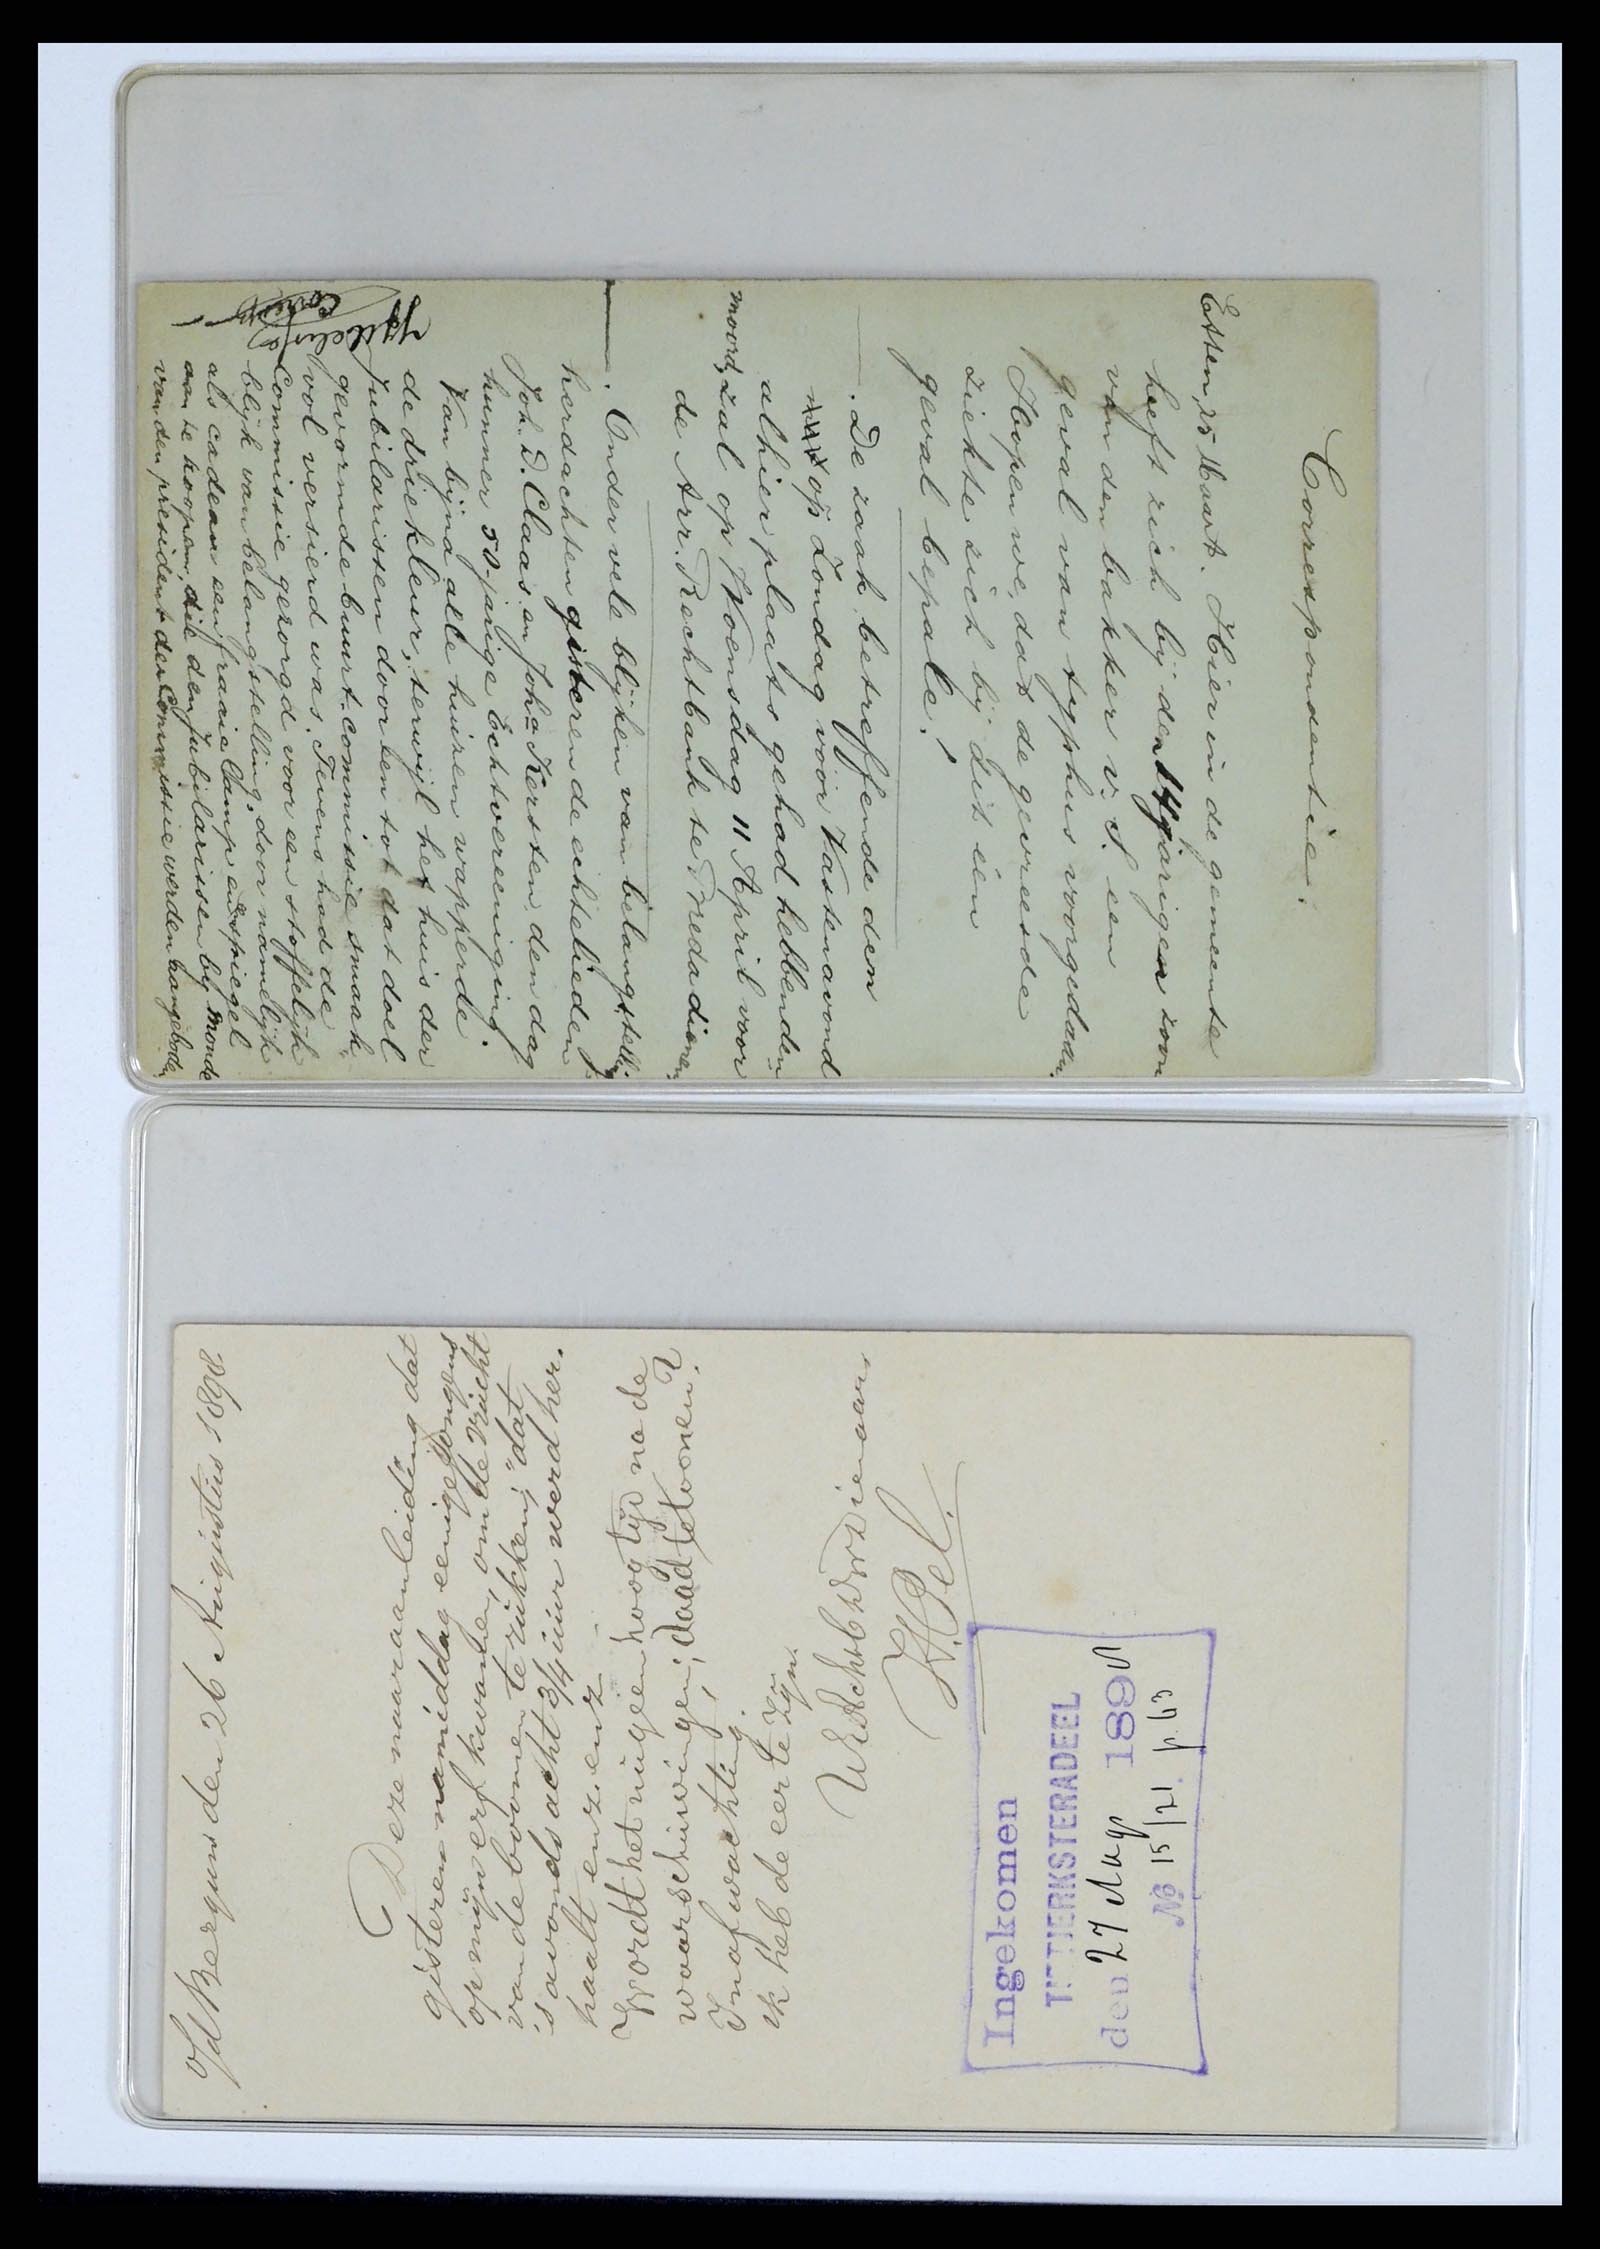 Correspondentie.
Etten, 25 Maart. Hier in de gemeente
heeft zich bij den 14 jarigen zoon
van den bakker v. S. een
geval van typhus voorgedaan.
Hopen we, dat de gevreesde
ziekte zich bij dit één
geval bepale!
De zaak betreffende den
op Zondag vóór Vastenavond
alhier plaats gehad hebbenden
moord, zal op Woensdag 11 April voor
de Arr. Rechtbank te Breda dienen.
Onder vele blijken van belangstelling
herdachten gisteren de echtelieden
Joh. D. Claas en Joha Kersten den dag
hunner 50-jarige Echtvereeniging.
Van bijna alle huizen wapperde
de driekleur, terwijl het huis der
Jubilarissen door een tot dat doel
gevormde buurt-commissie smaak-
vol versierd was. Tevens had de
Commissie gezorgd voor een stoffelijk
blijk van belangstelling, door namelijk
als cadeau een fraaie lamp en spiegel
aan te koopen, die den Jubilarissen bij monde
van den president der Commissie werden aangeboden.
Bergum den 26 Augustus 1898
Deze naar aanleiding dat
gisteren namiddag eenige jongens
op mijn erf kwamen, om de vrucht
van de boomen te rukken; dat
's avonds acht 3/4 uur werd her-
haalt enz enz
Wordt het nu geen hoog tijd na de
waarschuwingen, daad te toonen?
In afwachting.
ik heb de eer te zijn.
UEdAchtb Dwd Dienaar
K. Pel.
Ingekomen
TIETJERKSTERADEEL
den 27 Aug 1898
No 15/21 p 63